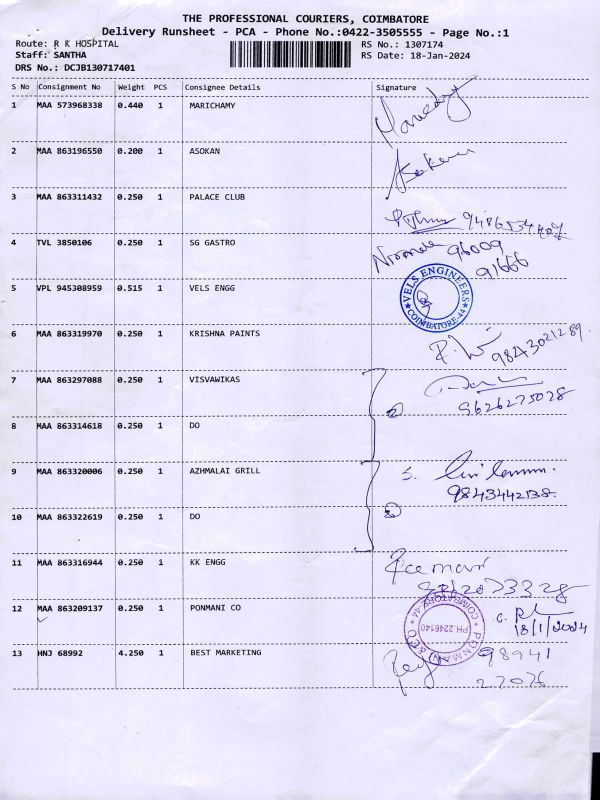 THE PROFESSIONAL COURIERS, COIMBATORE
Delivery Runsheet - PCA - Phone No.:0422-3505555 - Page No.:1
Route: R K HOSPITAL
Staff: SANTHA
DRS No.: DCJB130717401
RS No.: 1307174
RS Date: 18-Jan-2024
S No Consignment No Weight PCS Consignee Details Signature
1 MAA 573968338 0.440 1 MARICHAMY
2 MAA 863196550 0.200 1 ASOKAN Asokan
3 MAA 863311432 0.250 1 PALACE CLUB
4 TVL 3850106 0.250 1 SG GASTRO 96009
91666
5 VPL 945308959 0.515 1 VELS ENGG VELS ENGINEERS COIMBATORE-44
6 MAA 863319970 0.250 1 KRISHNA PAINTS 9843021289.
7 MAA 863297088 0.250 1 VISVAWIKAS 9626275028
8 MAA 863314618 0.250 1 DO
9 MAA 863320006 0.250 1 AZHMALAI GRILL 9843442138
10 MAA 863322619 0.250 1 DO
11 MAA 863316944 0.250 1 KK ENGG
12 MAA 863209137 0.250 1 PONMANI CO PONMANI & CO COIMBATORE-44 PH.2246140
18/1/2024
13 HNJ 68992 4.250 1 BEST MARKETING 98941
27076